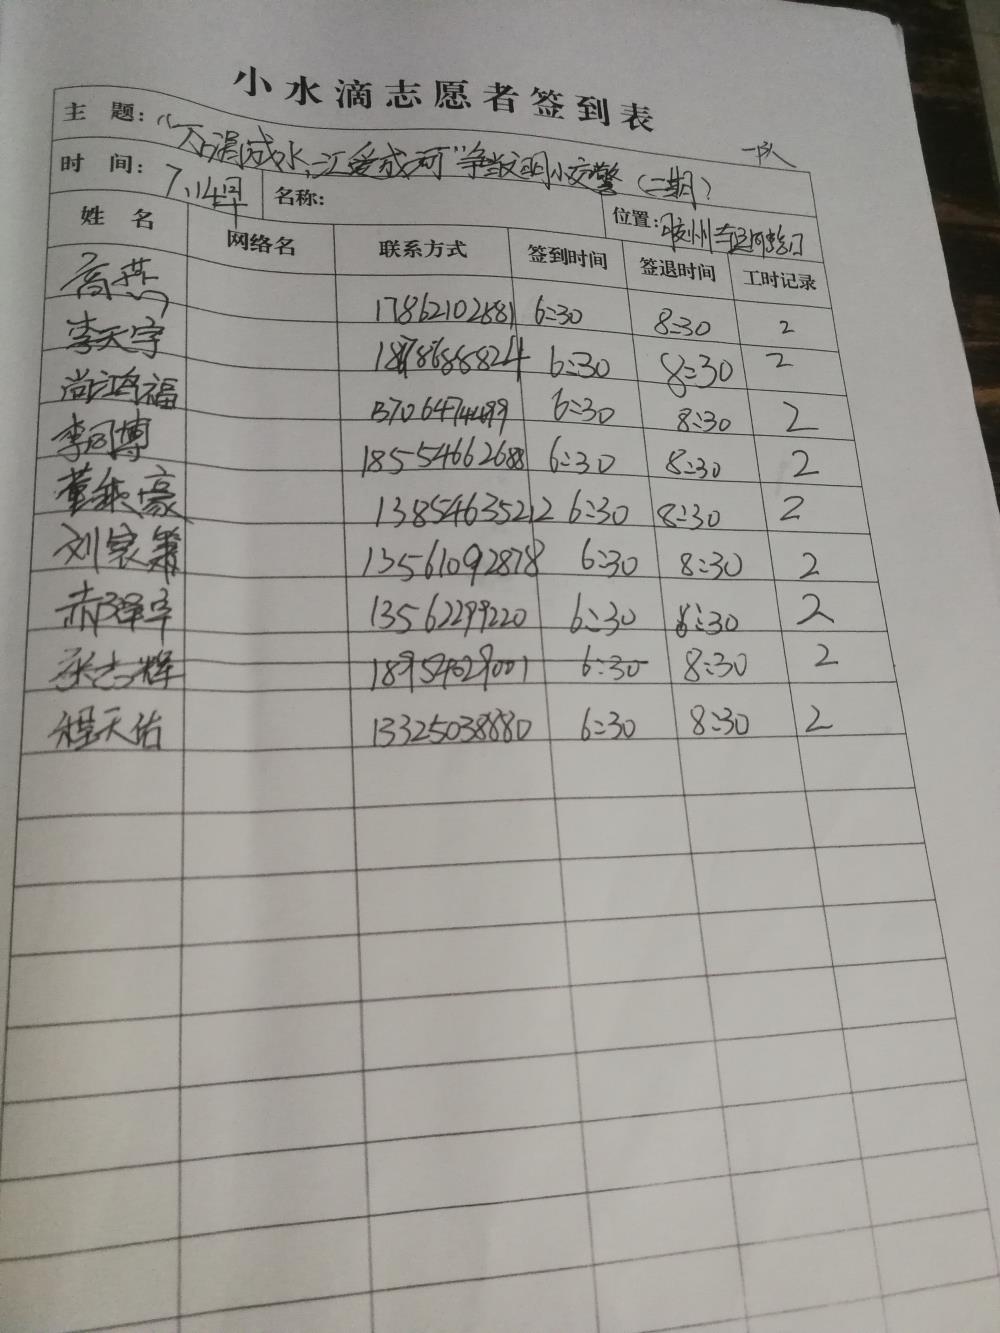 小水滴志愿者签到表
主 题: "石漏成水,汇爱成河"争当文明小交警(二期) 一队
时 间: 7.14早 名称: 位置: 胶州东运河路口
姓 名 网络名 联系方式 签到时间 签退时间 工时记录
高燕 17862102881 6:30 8:30 2
李天宇 6:30 8:30 2
尚鸿福 6:30 8:30 2
李同博 18554662688 6:30 8:30 2
董 豪 13854635212 6:30 8:30 2
刘家箫 13561092878 6:30 8:30 2
赤泽宇 13562299220 6:30 8:30 2
张志辉 18954629001 6:30 8:30 2
程天佑 13325038880 6:30 8:30 2